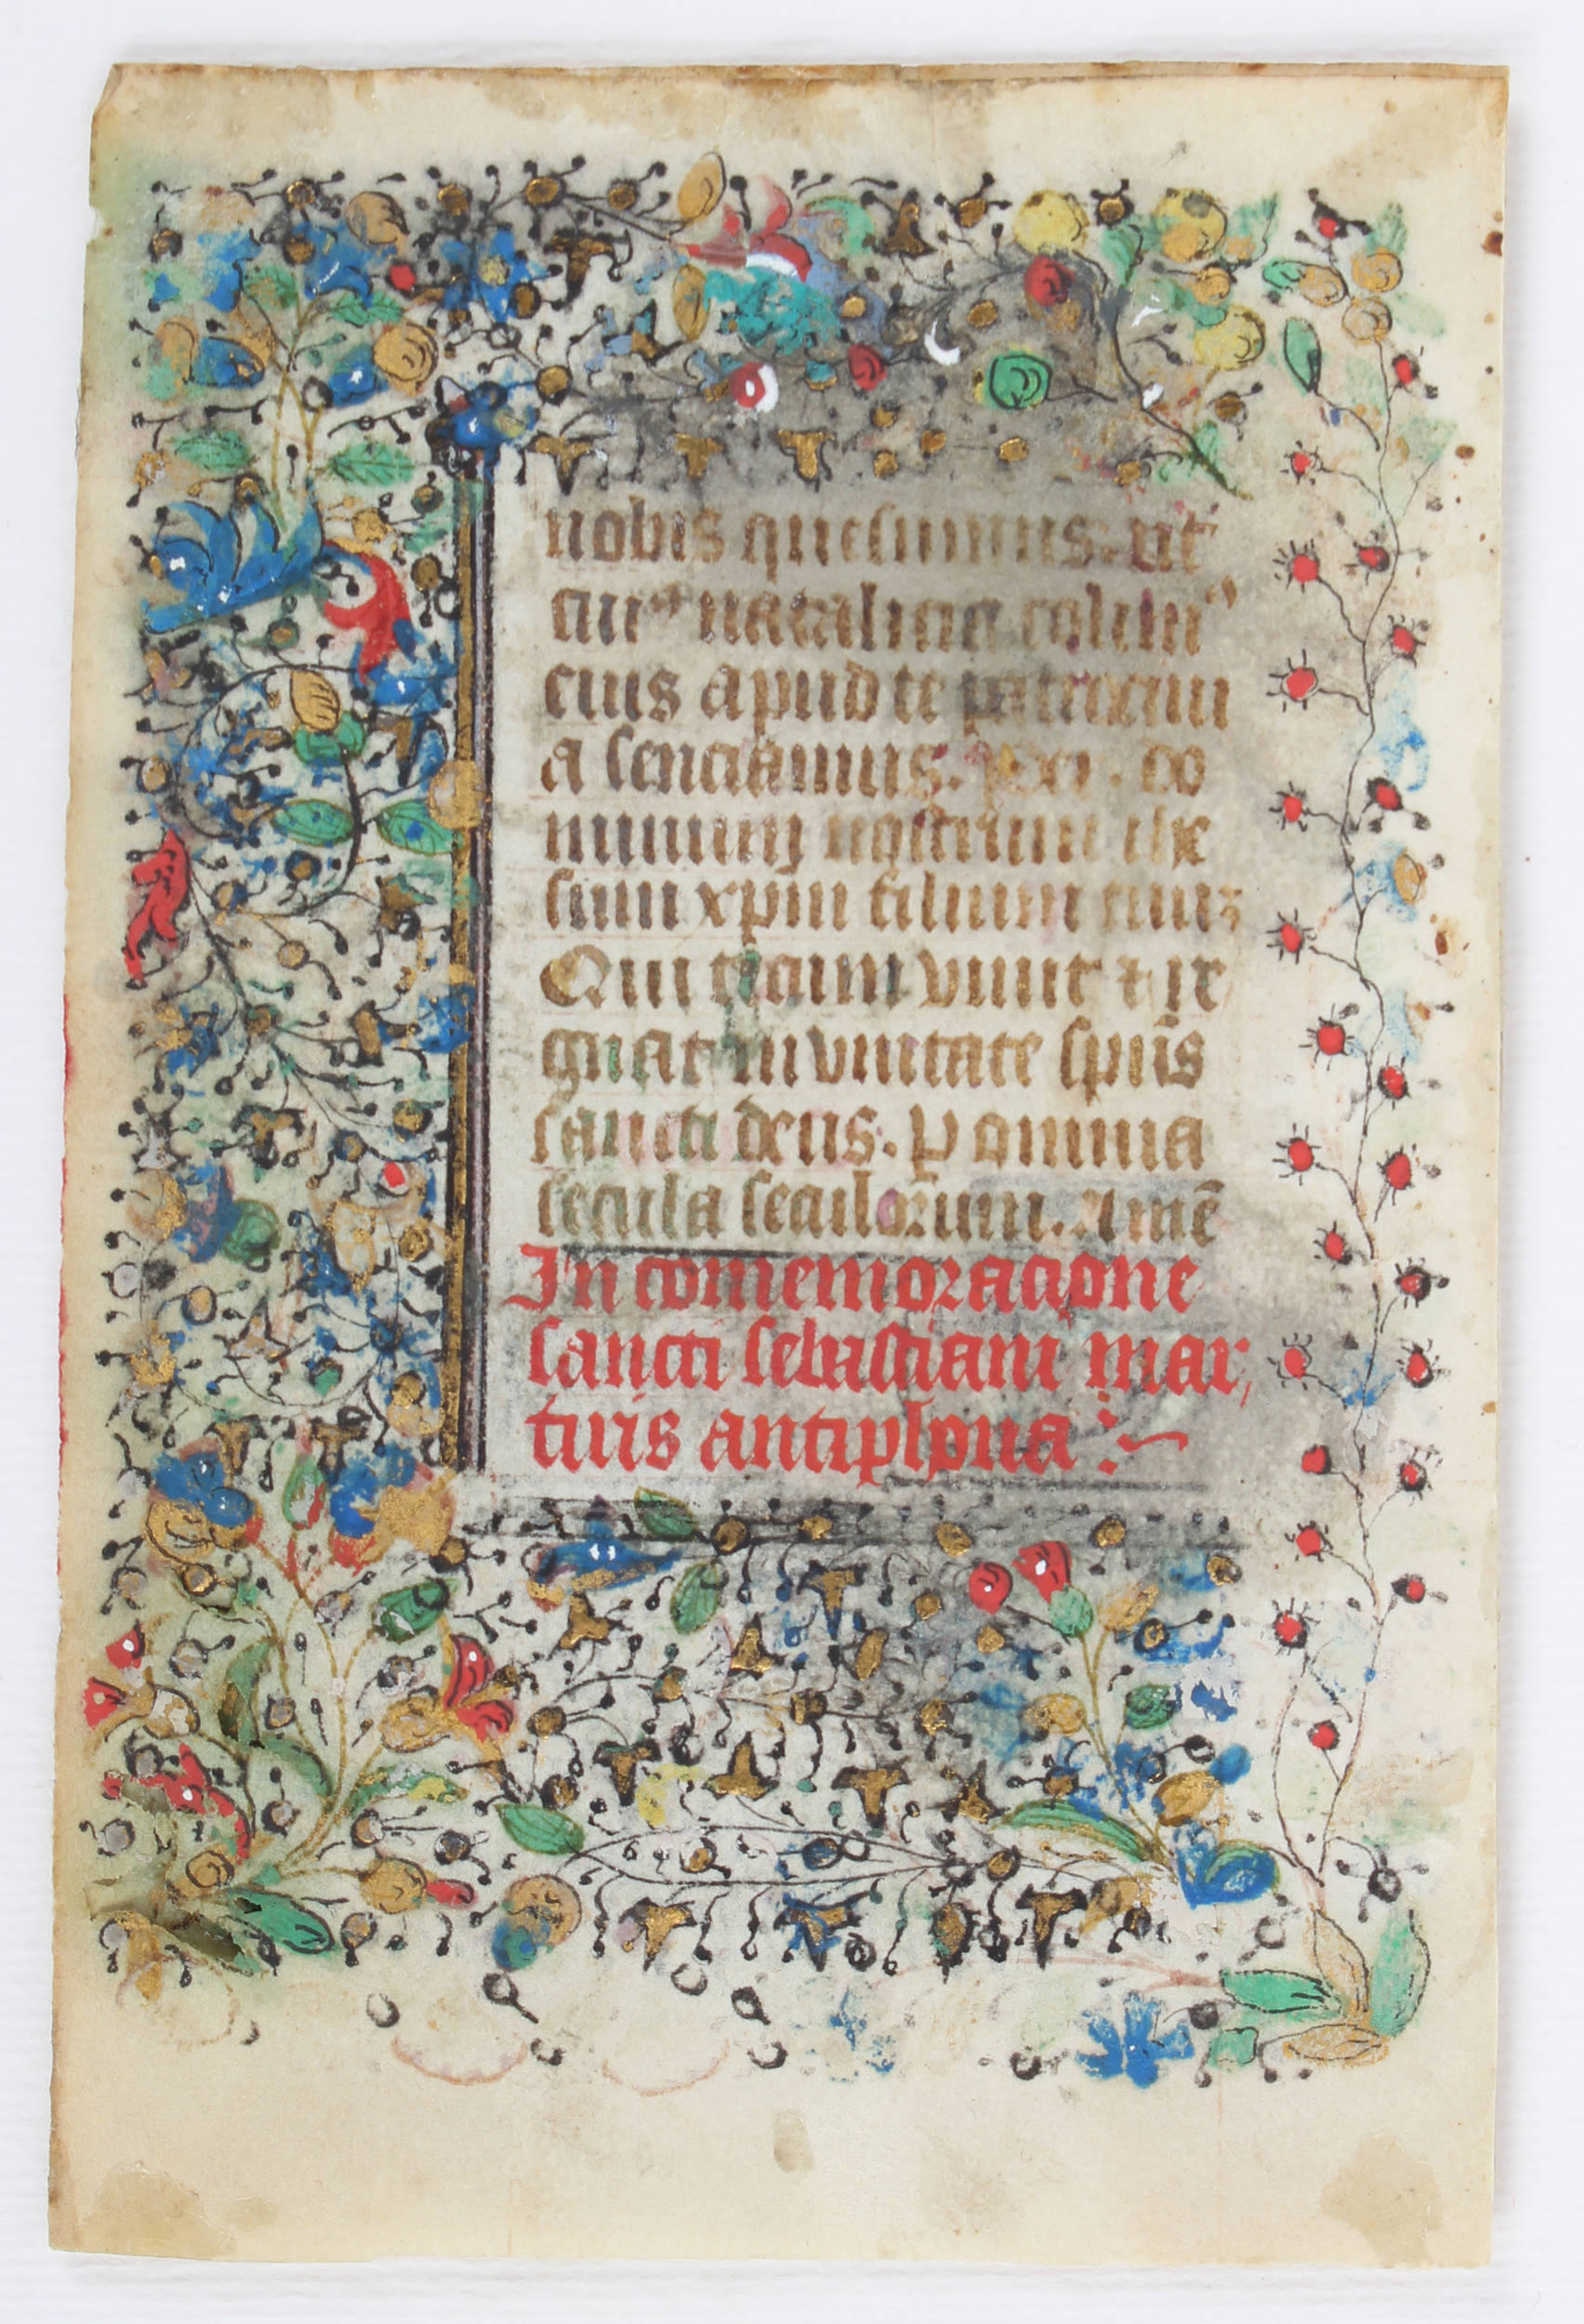 nobis quesumus. ut
cuiꝰ natalicia colim᷒
eius apud te patrocini
a senciamus. Per. do
minum nostrum ihe
sum xpm filium tuuꝫ
Qui tecum viuit ⁊ re
gnat in vnitate spũs
sancti deus. P omnia
secula seculorum. Amē
In comemoracione
sancti sebastiani mar,
tiris antiphona :~